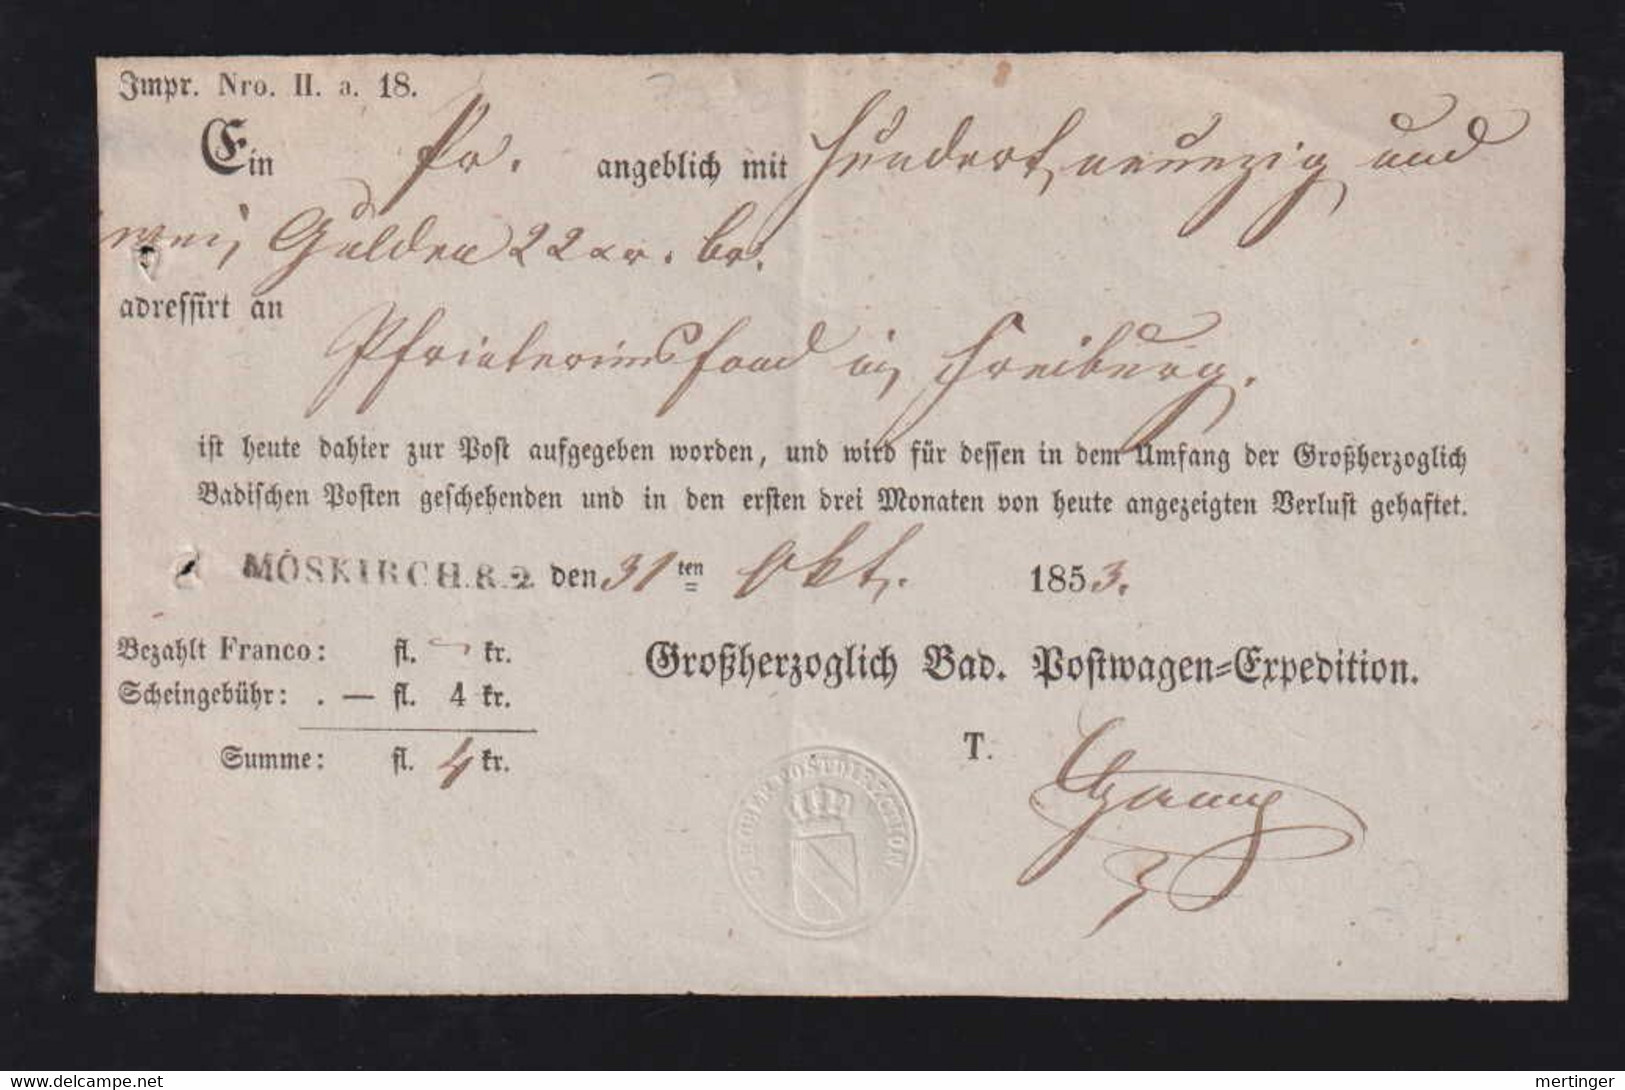 Impr. Nro. II. a. 18.
Ein Pr. angeblich mit hundert neunzig und
zwei Gulden 22 xr. br.
adressirt an
fond in Freiburg.
ist heute dahier zur Post aufgegeben worden, und wird für dessen in dem Umfang der Großherzoglich
Badischen Posten geschehenden und in den ersten drei Monaten von heute angezeigten Verlust gehaftet.
MÖSKIRCH. R. 2. den 31ten Okt. 1853.
Bezahlt Franco: fl. kr.
Scheingebühr: . — fl. 4 kr.
Summe: fl. 4 kr.
Großherzoglich Bad. Postwagen=Expedition.
T.
mertinger